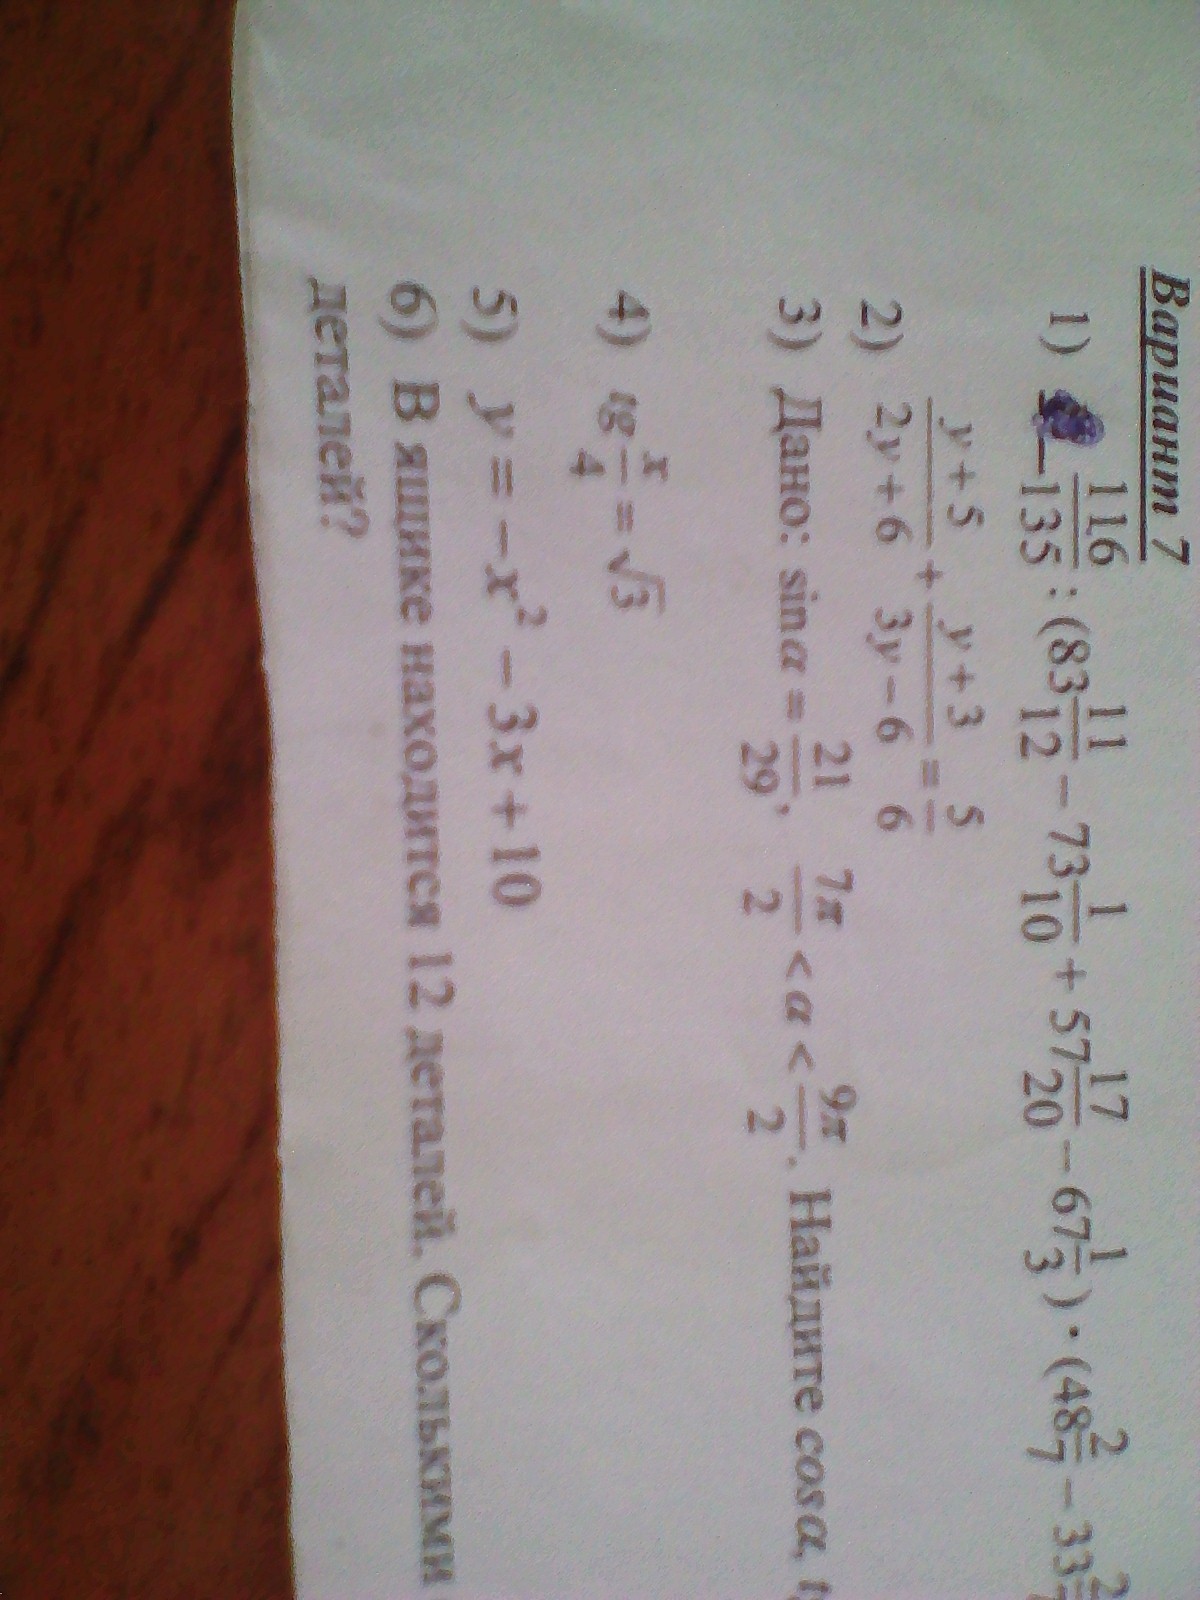 Вариант 7
1) 116/135 : (83 11/12 − 73 1/10 + 57 17/20 − 67 1/3) · (48 2/7 − 33
2) (y + 5)/(2y + 6) + (y + 3)/(3y − 6) = 5/6
3) Дано: sin α = 21/29, 7π/2 < α < 9π/2. Найдите cos α,
4) tg x/4 = √3
5) y = −x² − 3x + 10
6) В ящике находится 12 деталей. Сколькими
деталей?